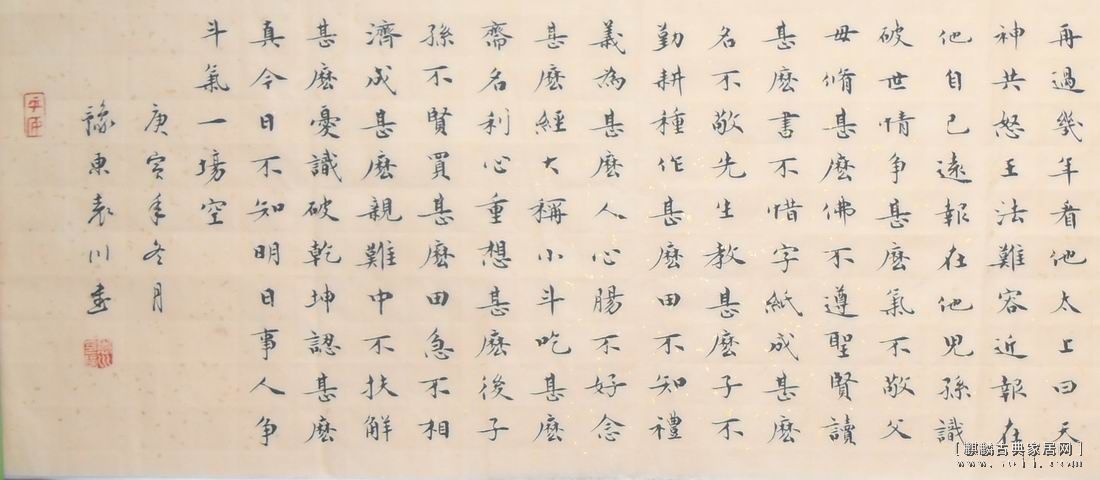 再過幾年看他太上曰天
神共怒王法難容近報在
他自己遠報在他児孫識
破世情争甚麼氣不敬父
毋脩甚麼佛不遵聖賢讀
甚麼書不惜字紙成甚麼
名不敬先生教甚麼子不
勤耕種作甚麼田不知禮
義為甚麼人心腸不好念
甚麼經大稱小斗吃甚麼
齋名利心重想甚麼後子
孫不賢買甚麼田急不相
濟成甚麼親難中不扶解
甚麼憂識破乾坤認甚麼
真今日不知明日事人争
斗氣一場空
庚寅年冬月
豫東袁川書
[麒麟古典家居网]